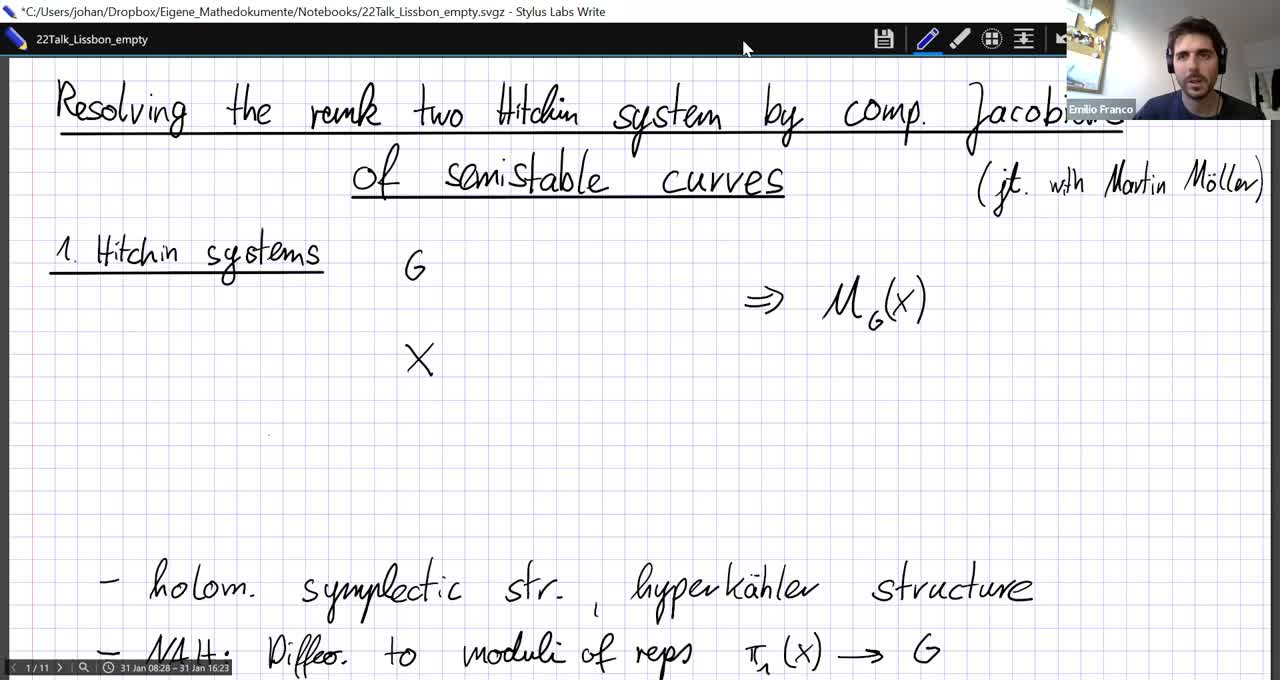 *C:/Users/johan/Dropbox/Eigene_Mathedokumente/Notebooks/22Talk_Lissbon_empty.svgz - Stylus Labs Write
22Talk_Lissbon_empty
Emilio Franco
Resolving the rank two Hitchin system by comp. Jacobians
of semistable curves
(jt. with Martin Möller)
1. Hitchin systems
G
⇒ M_G(X)
X
- holom. symplectic str., hyperkähler structure
- NAH: Diffeo. to moduli of reps π₁(X) → G
1 / 11
31 Jan 08:28 – 31 Jan 16:23